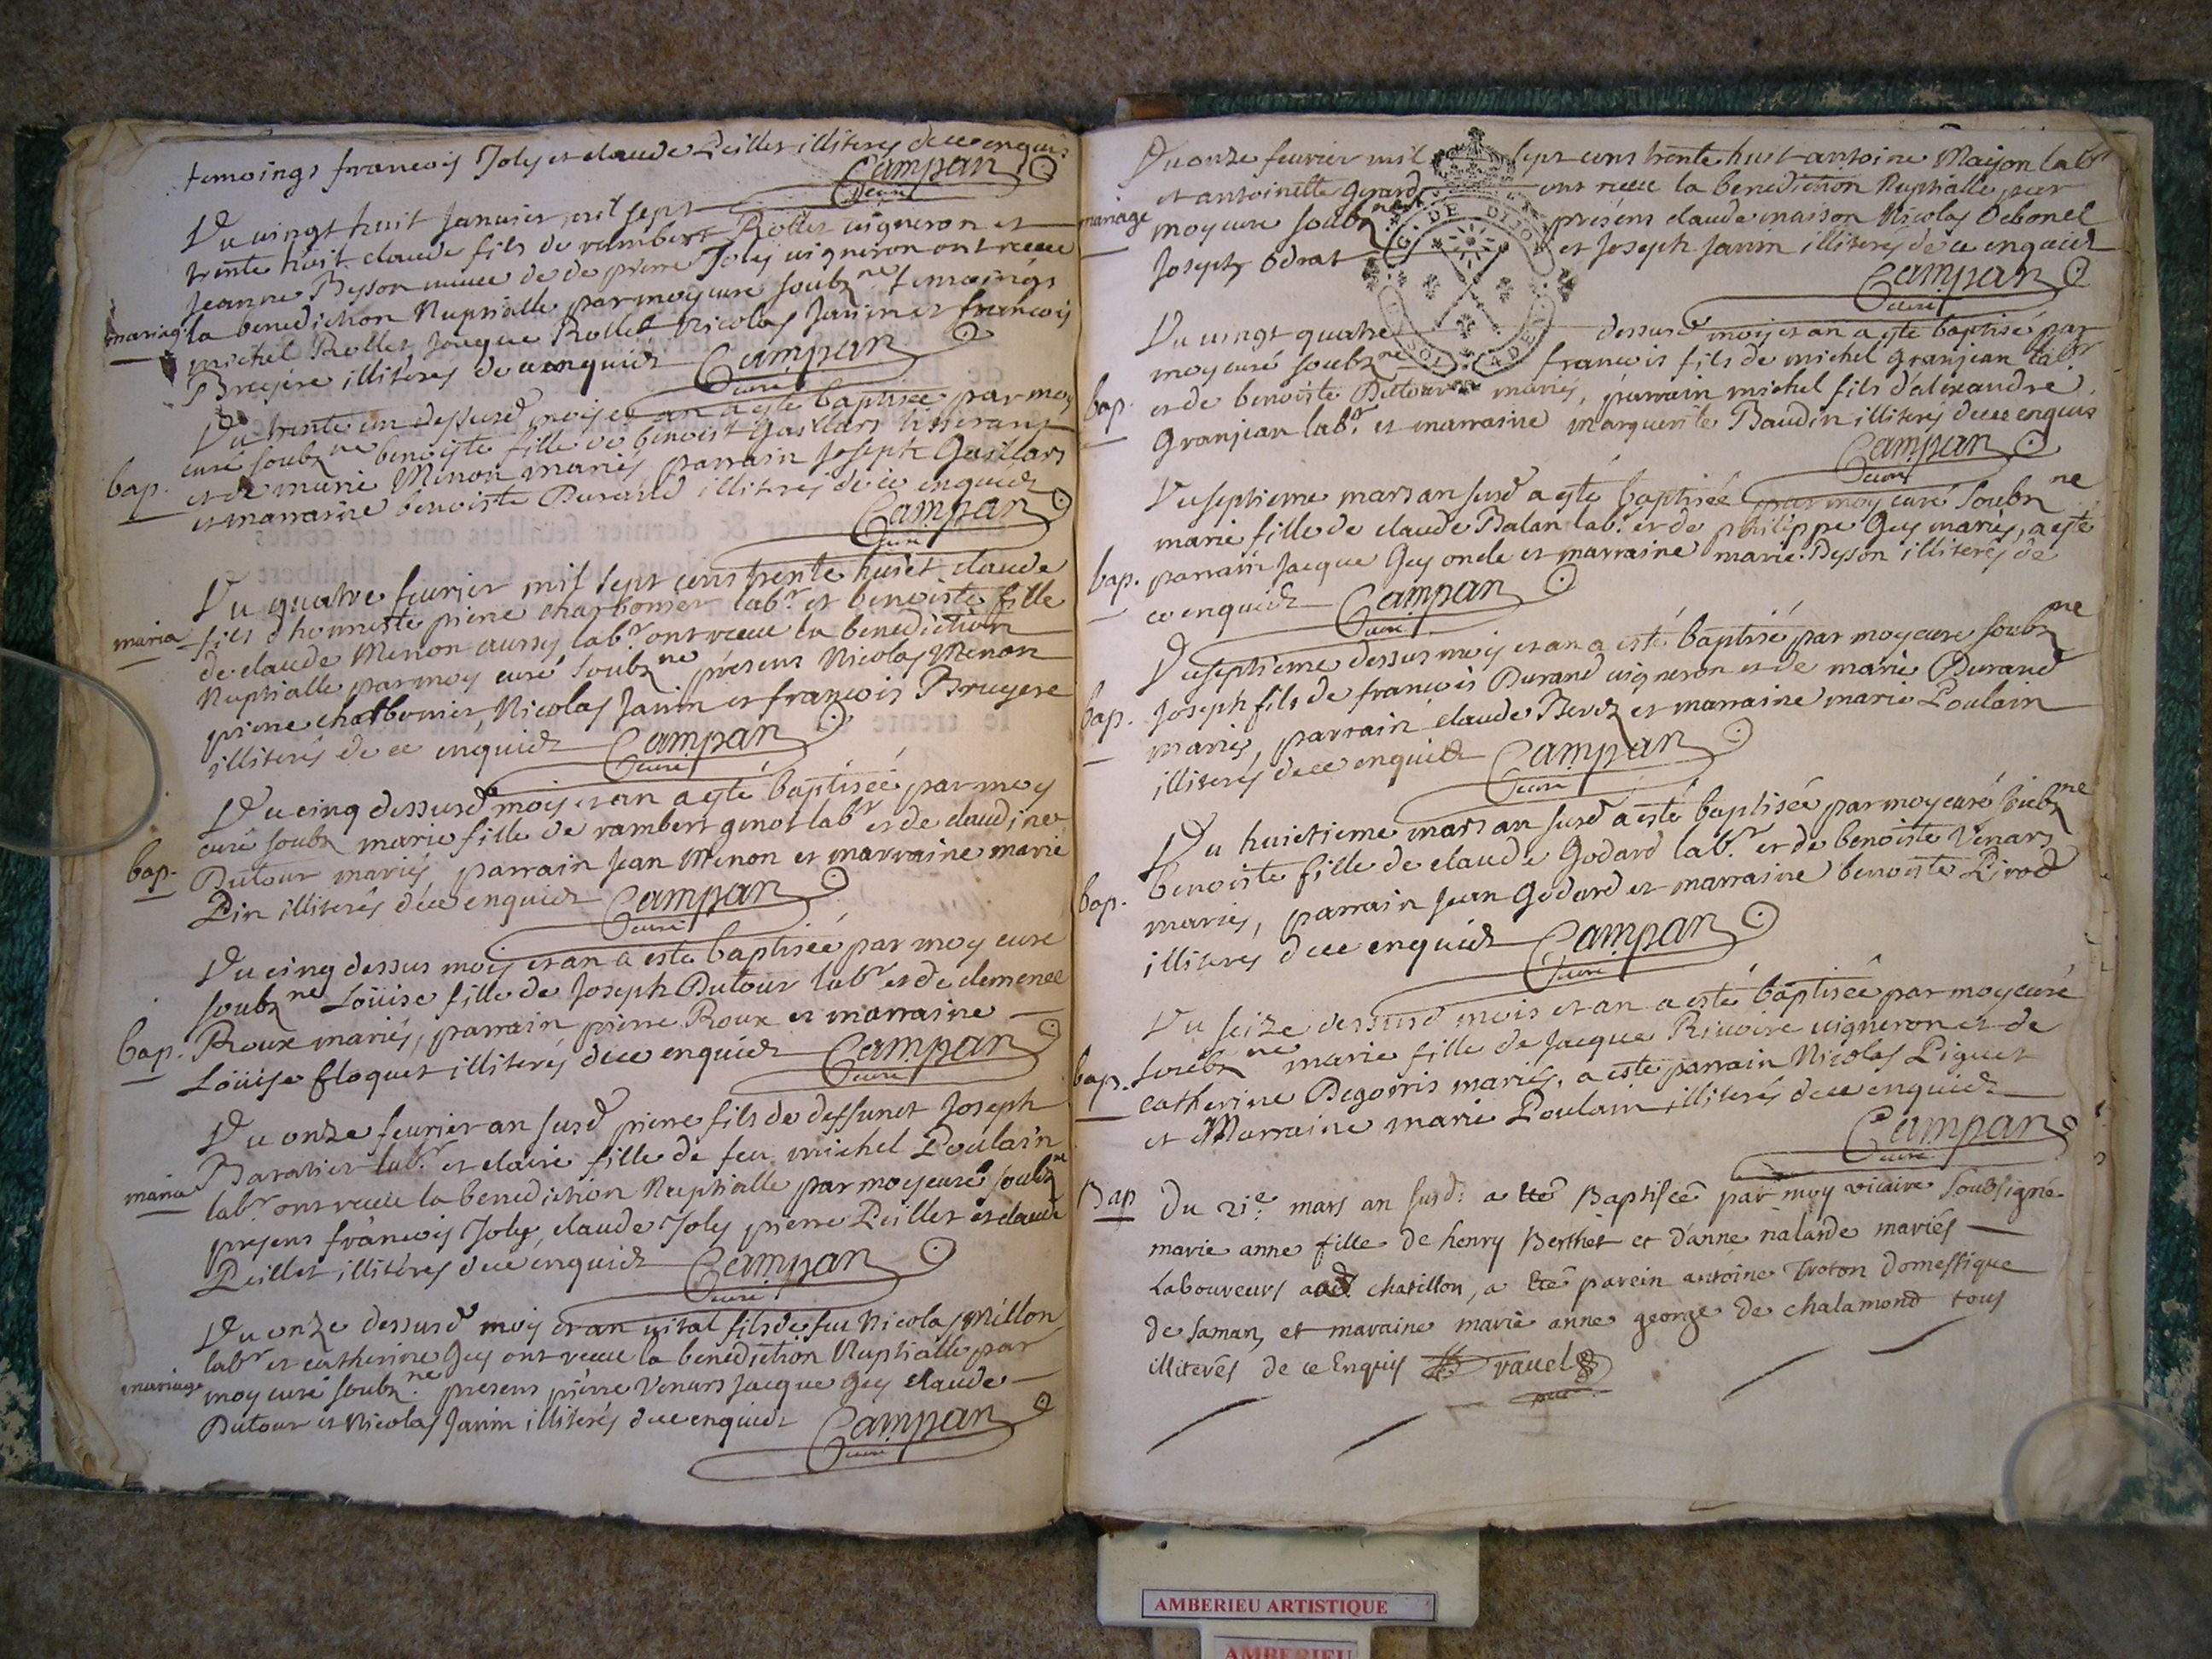 temoings francois Joly et claude Peillet illiterés de ce enquis
Campan
curé
Du vingt huit Janvier mil sept
trente huit claude fils de rambert Rollet vigneron et
Jeanne Byson veuve de de pierre Joly vigneron ont receu
mariage la benediction Nuptialle par moy curé soubz.ne temoings
michel Rollet, Jacque Rollet Nicolas Janin et francois
Bruyere illiterés de ce enquidz Campan
curé
Du trente un dessusd mois et an a esté baptisée par moy
curé soubz.ne benoiste fille de benoist Gaillars tisserant
bap. et de marie Minon mariés parrain Joseph Gaillars
et marraine benoiste Durand illiterés de ce enquidz
Campan
curé
Du quatre fevrier mil sept cens trente huict claude
maria fils d'honneste pierre charbonier lab.r et benoiste fille
de claude Menon aussy lab.r ont receu la benediction
Nuptialle par moy curé soubz.ne présens Nicolas Menon
pierre charbonier, Nicolas Janin et francois Bruyere
illiterés de ce enquidz Campan
curé
Du cinq dessusd mois et an a esté baptisée par moy
curé soubz marie fille de rambert genot lab.r et de claudine
bap. Dutour mariés parrain Jean Menon et marraine marie
Pin illiterés de ce enquidz Campan
curé
Du cinq dessus mois et an a esté baptisée par moy curé
soubz.ne Loüise fille de Joseph Dutour lab.r et de clemence
bap. Roux mariés, parrain pierre Roux et marraine
Loüise floquet illiterés de ce enquidz Campan
curé
Du onze fevrier an susd pierre fils de deffunct Joseph
Baratier lab.r et claire fille de feu michel Poulain
maria lab.r ont receu la benediction Nuptialle par moy curé soubz.ne
presens francois Joly, claude Joly pierre Peillet et claude
Peillet illiterés de ce enquidz Campan
curé
Du onze dessusd mois et an vital fils de feu Nicolas millon
lab.r et catherine Guy ont receu la benediction Nuptialle par
mariage moy curé soubz.ne presens pierre Venars Jacque Guy claude
Dutour et Nicolas Janin illiterés de ce enquidz Campan
curé
Du onze fevrier mil sept cens trente huit antoine Maison lab.r
et antoinette Gerard ont receu la benediction Nuptialle par
mariage moy curé soubz.ne présens claude maison Nicolas Debonel
Joseph Odrat et Joseph Janin illiterés de ce enquidz
G. DE DIJON
Campan
curé
Du vingt quatre dessusd mois et an a esté baptisé par
moy curé soubz.ne francois fils de michel Granjean lab.r
bap. et de benoiste Dutour mariés, parrain michel fils d'alexandre
Granjean lab.r et marraine marguerite Baudin illiterés de ce enquis
Campan
curé
Du septieme mars an susd a esté baptisée par moy curé soubz.ne
marie fille de claude Balan lab.r et de philippe Guy mariés, a esté
bap. parrain Jacque Guy oncle et marraine marie Dyson illiterés de
ce enquidz Campan
curé
Du septieme dessus mois et an a esté baptisé par moy curé soubz.ne
Joseph fils de francois Durand vigneron et de marie Durand
bap. mariés, parrain claude Bevoz et marraine marie Poulain
illiterés de ce enquidz Campan
curé
Du huictieme mars an susd a esté baptisée par moy curé soubz.ne
benoiste fille de claude Godard lab.r et de benoiste Venars
bap. mariés, parrain Jean Godard et marraine benoiste Pirod
illiterés de ce enquidz Campan
curé
Du seize dessusd mois et an a esté baptisée par moy curé
soubz.ne marie fille de Jacque Rivoire vigneron et de
bap. catherine Degorris mariés, a esté parrain Nicolas Piguet
et Marraine marie Poulain illiterés de ce enquidz
Campan
curé
Bap Du 21.e mars an susd: a eté Baptiseé par moy vicaire soubsigné
marie anne fille de henry Berthet et d'anne nalarde mariés
Laboureurs aud chatillon, a eté parein antoine Troton domestique
de saman, et maraine marie anne george de chalamond tous
illiterés de ce Enquis ravel
AMBERIEU ARTISTIQUE
AMBERIEU